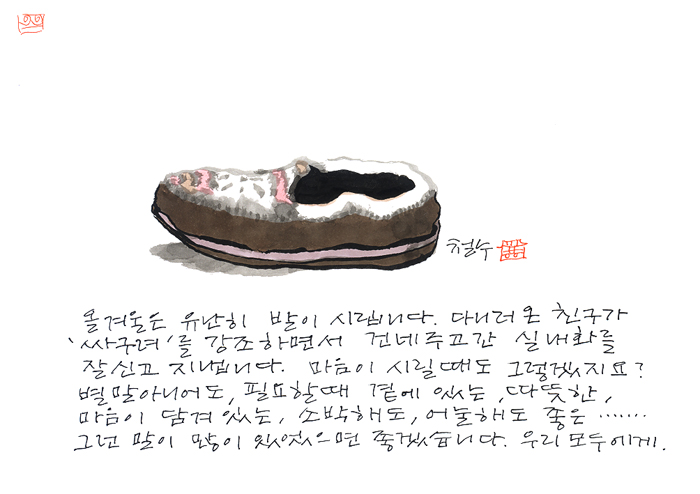 철수
올겨울은 유난히 발이 시립니다. 다니러온 친구가
'싸구려'를 강조하면서 건네주고간 실내화를
잘신고 지냅니다. 마음이 시릴때도 그렇겠지요?
별말아니어도, 필요할때 곁에 있는, 따뜻한,
마음이 담겨있는, 소박해도, 어눌해도 좋은 .......
그런 말이 많이 있었으면 좋겠습니다. 우리 모두에게.